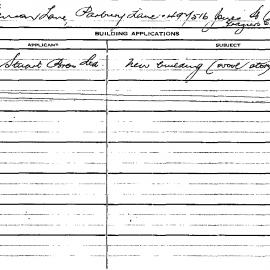 Lane, Parbury Lane & 497/516 Jones St
BUILDING APPLICATIONS
APPLICANT SUBJECT
Stuart Bros Ltd New building (wool store)